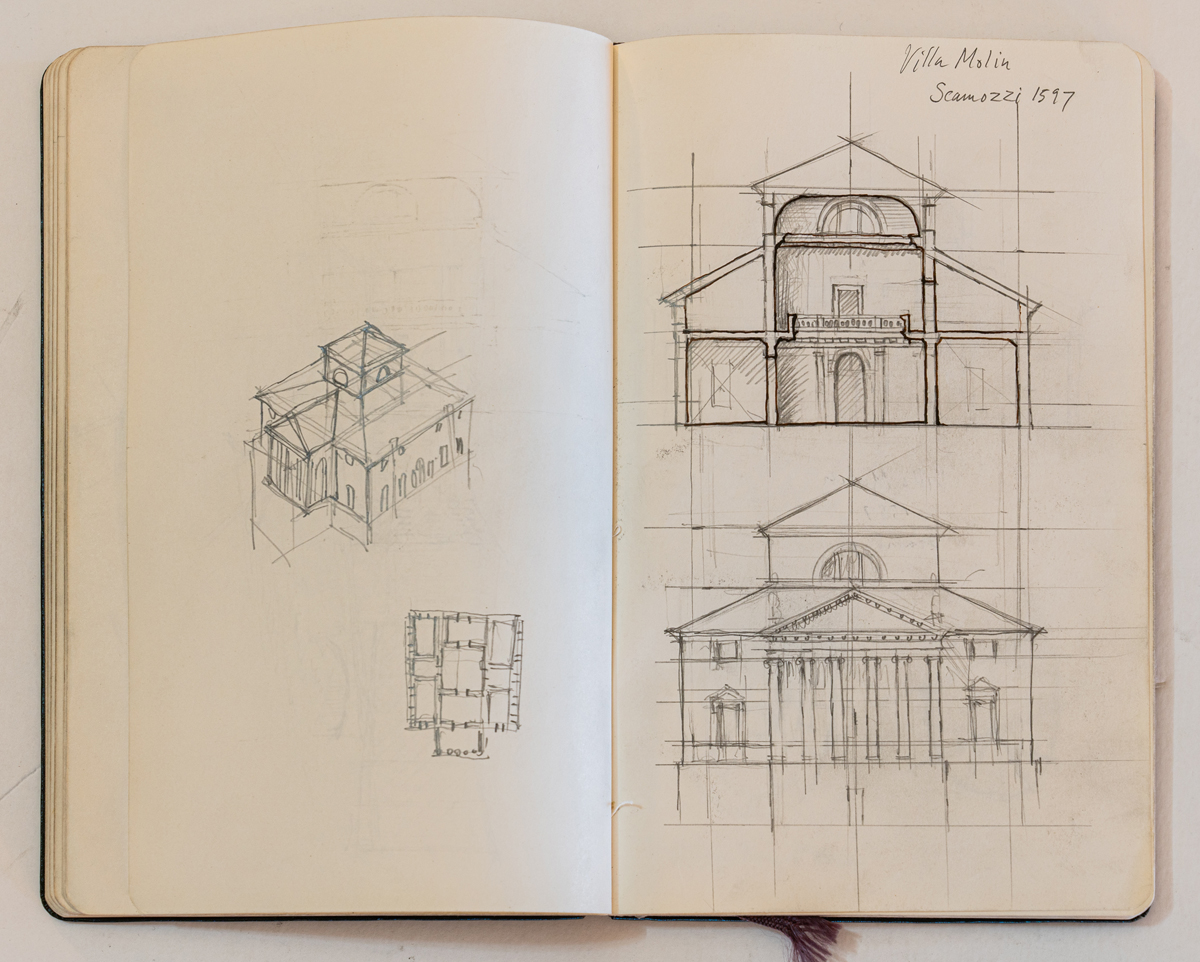 Villa Molin
Scamozzi 1597